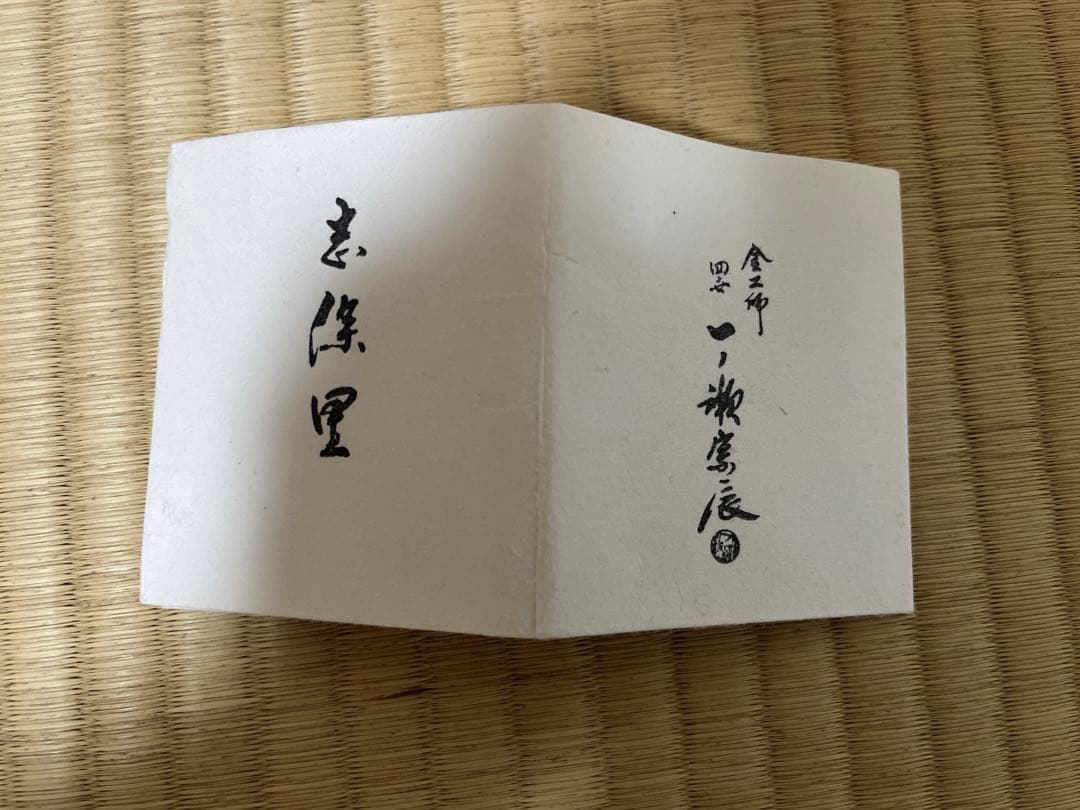 志保里
金工師
四世
一ノ瀬宗辰